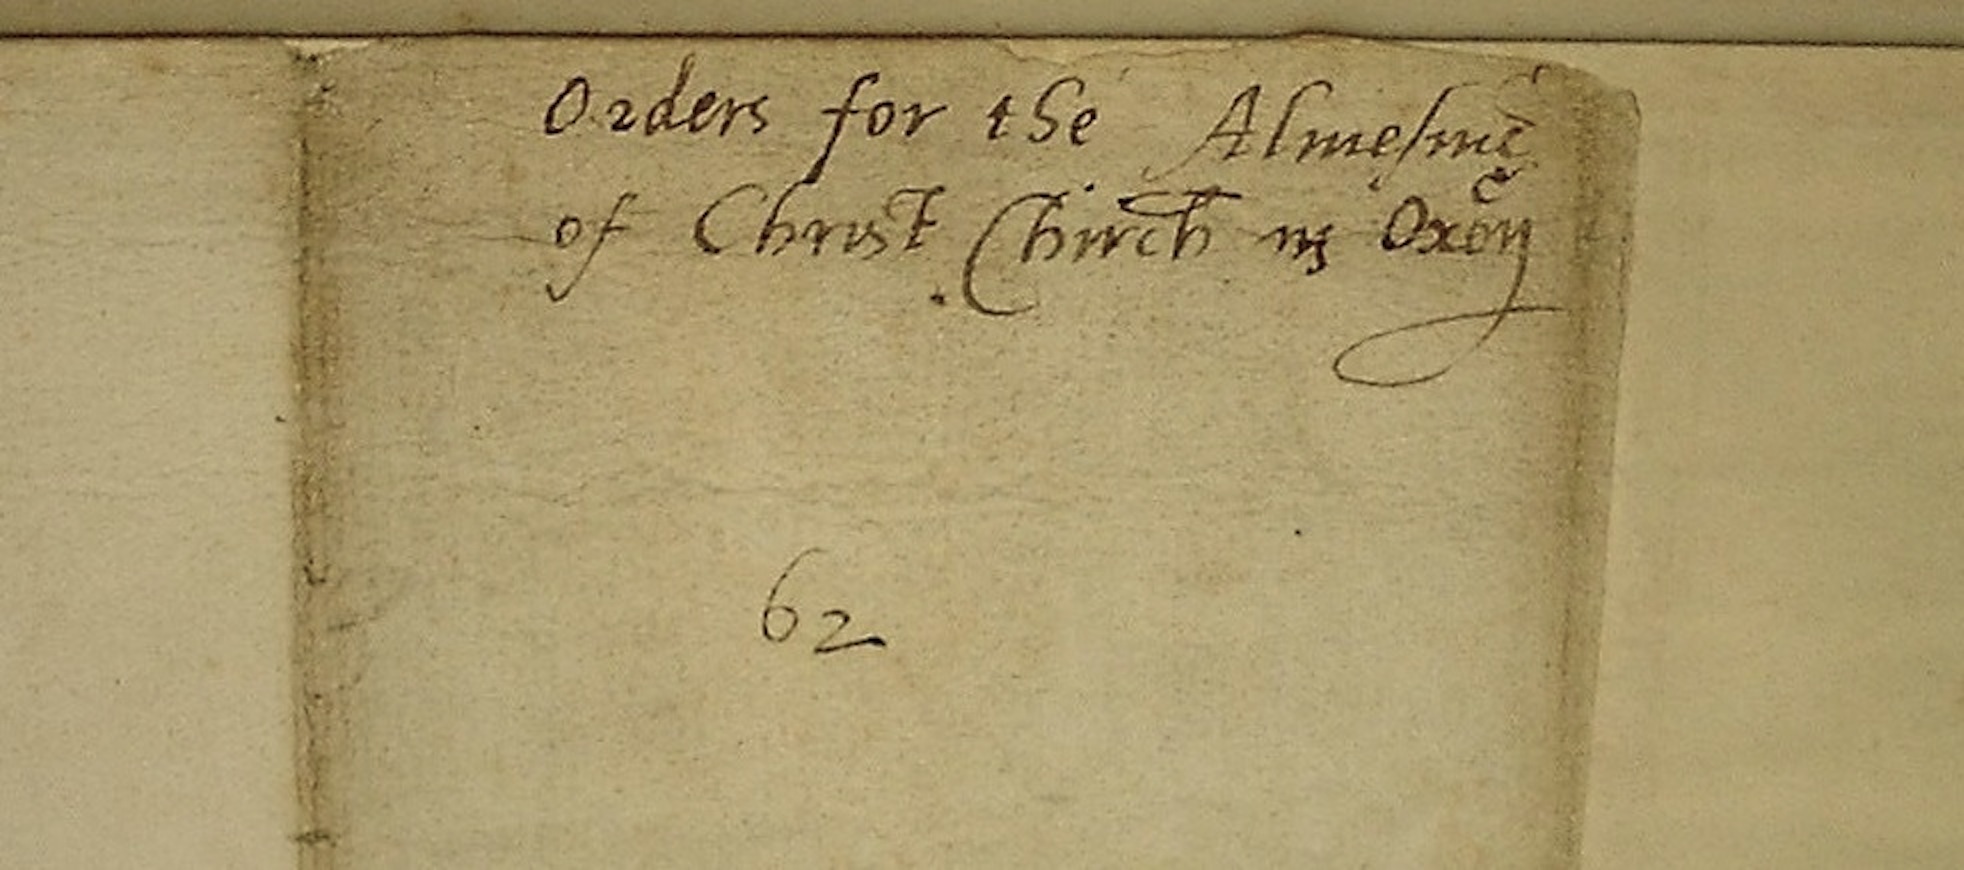 Orders for the Almesmē
of Christ Church in Oxōn
62